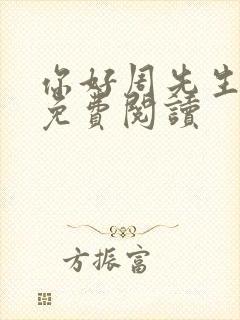 你好周先生
免費閱讀
方振富